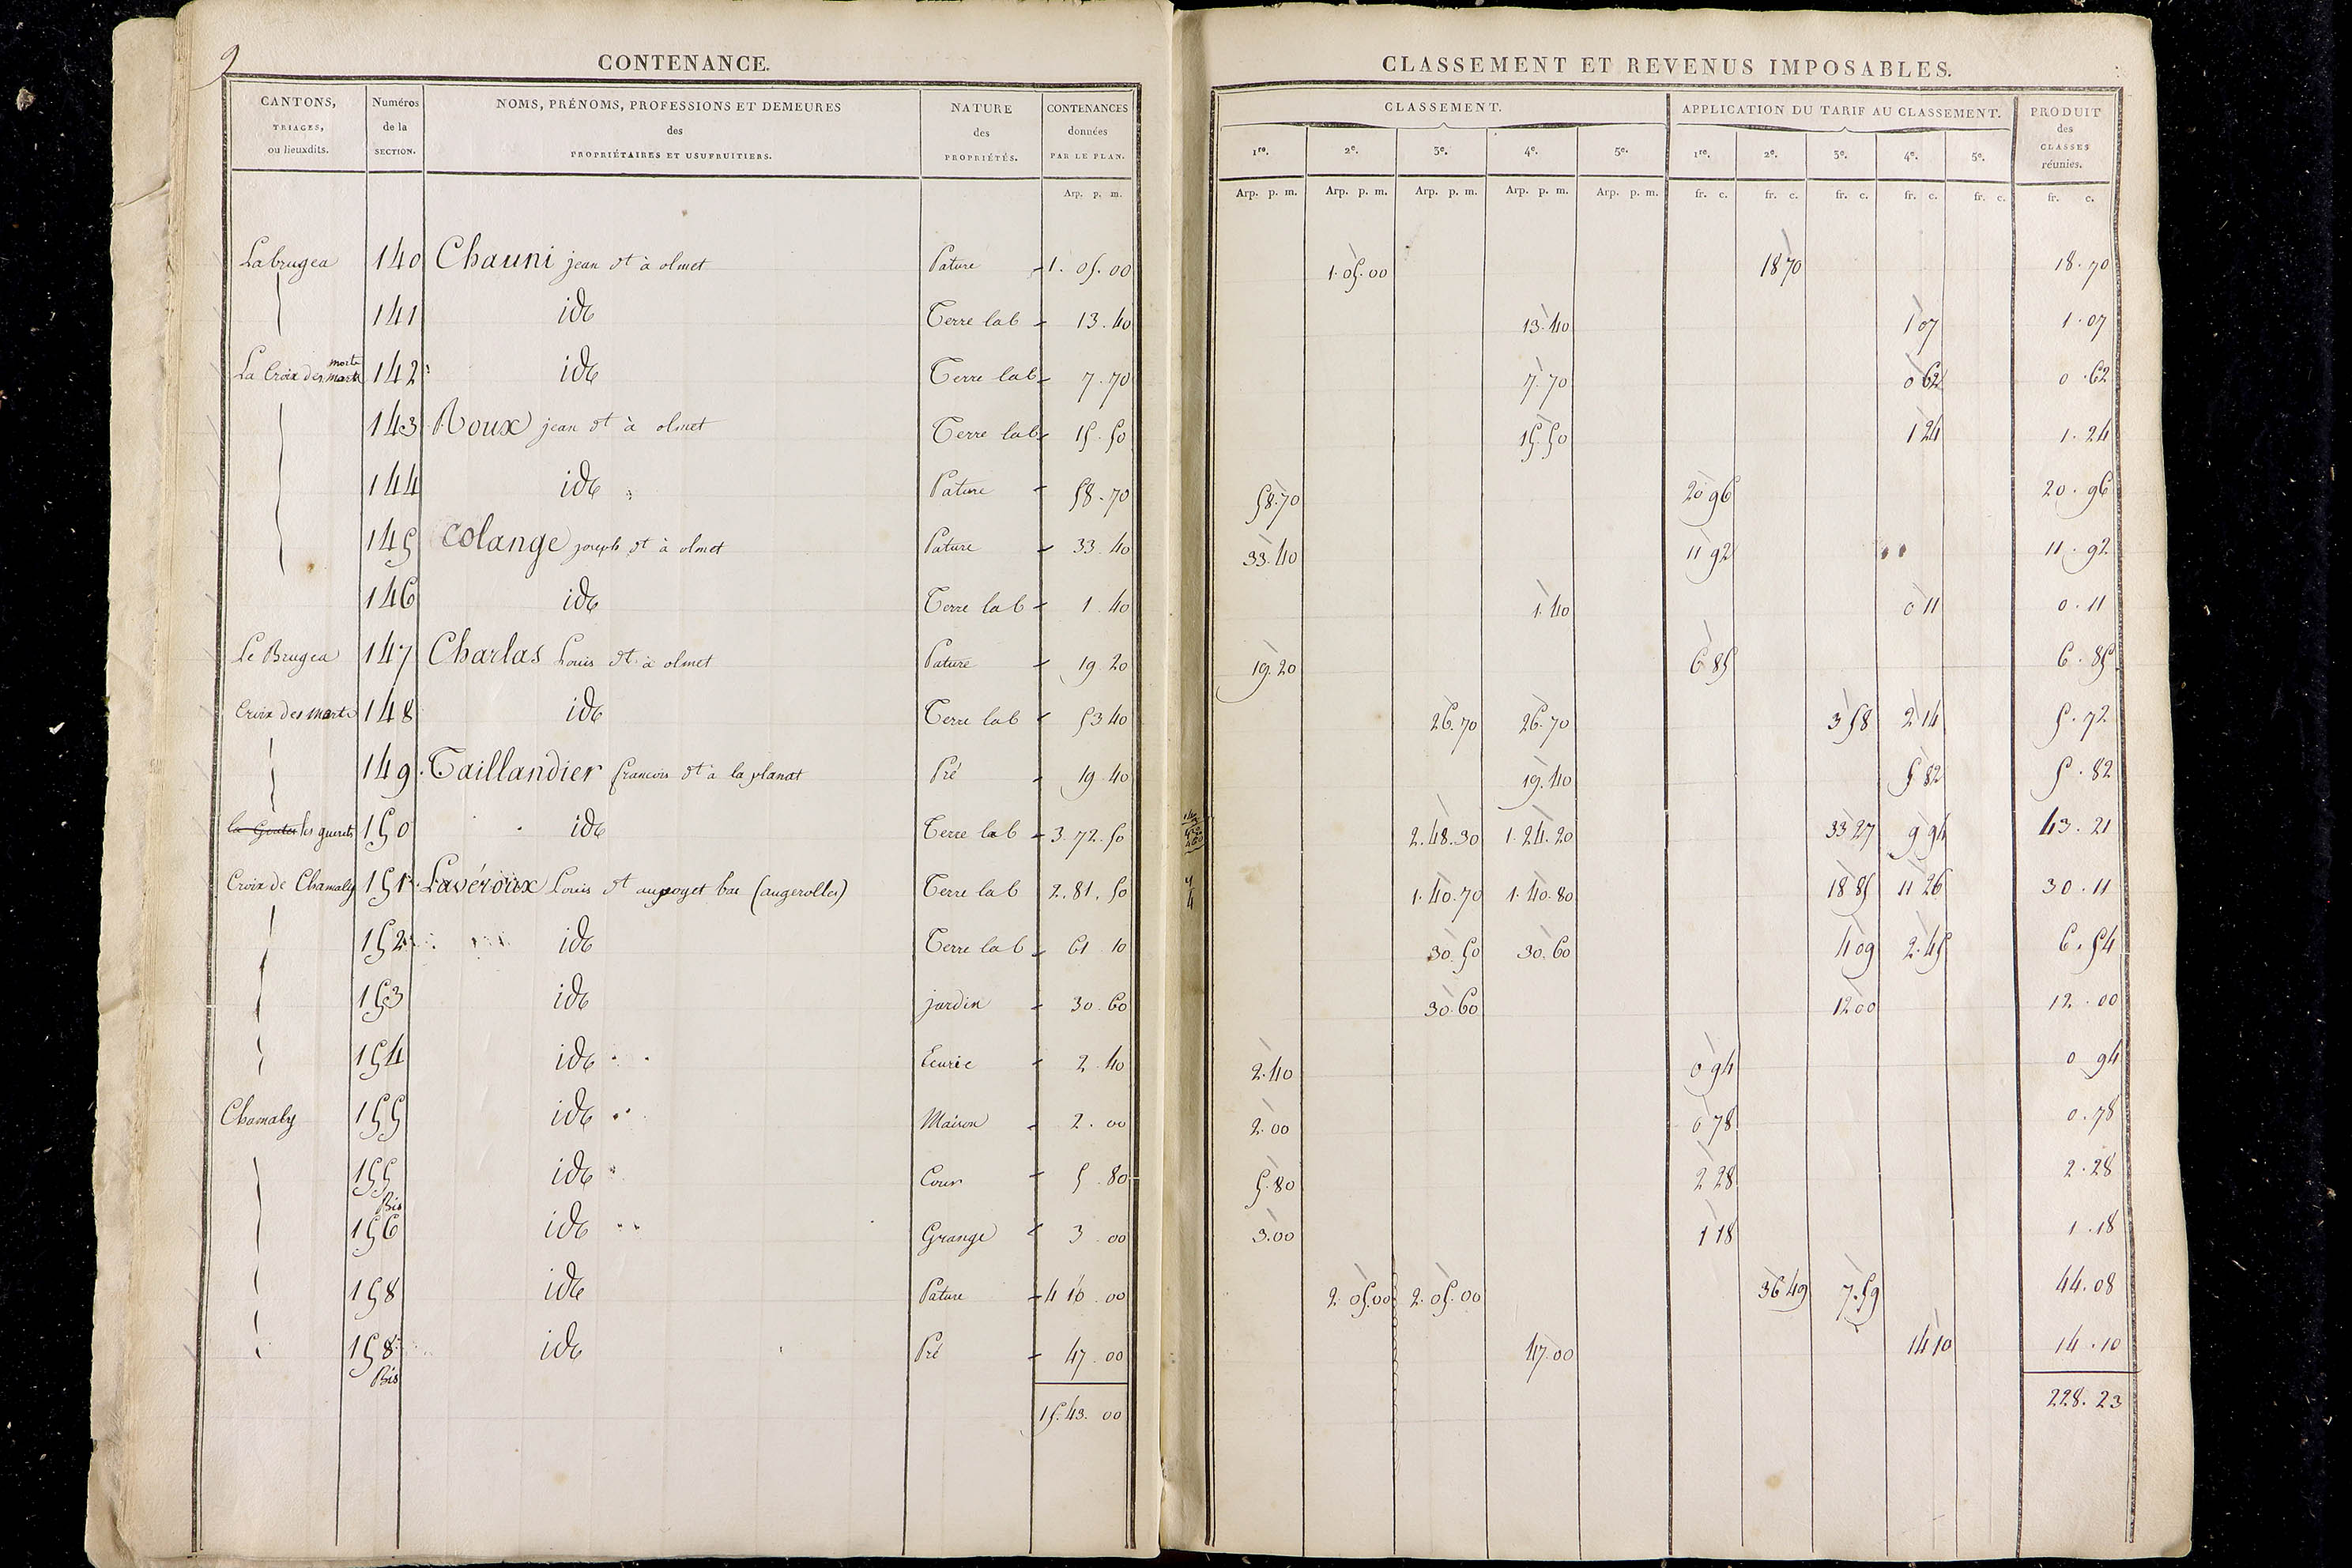 9
CONTENANCE.
CANTONS, TRIAGES, ou lieuxdits. | Numéros de la SECTION. | NOMS, PRÉNOMS, PROFESSIONS ET DEMEURES des PROPRIÉTAIRES ET USUFRUITIERS. | NATURE des PROPRIÉTÉS. | CONTENANCES données PAR LE PLAN.
Arp. p. m.
CLASSEMENT ET REVENUS IMPOSABLES.
CLASSEMENT. | APPLICATION DU TARIF AU CLASSEMENT. | PRODUIT des CLASSES réunies.
1re. | 2e. | 3e. | 4e. | 5e. | 1re. | 2e. | 3e. | 4e. | 5e.
Arp. p. m. | Arp. p. m. | Arp. p. m. | Arp. p. m. | Arp. p. m. | fr. c. | fr. c. | fr. c. | fr. c. | fr. c. | fr. c.
La brugea 140 Chauni jean dt à olmet Pature 1. 05. 00 1. 05. 00 18 70 18. 70
141 ide Terre lab 13. 40 13. 40 1 07 1. 07
La Croix des morts 142 ide Terre lab 7. 70 7. 70 0 62 0. 62
143 Roux jean dt à olmet Terre lab 15. 50 15. 50 1 24 1. 24
144 ide Pature 58. 70 58. 70 20 96 20. 96
145 Colange joseph dt à olmet Pature 33. 40 33. 40 11 92 11. 92
146 ide Terre lab 1. 40 1. 40 0 11 0. 11
Le Brugea 147 Charlas Louis dt à olmet Pature 19. 20 19. 20 6 85 6. 85
Croix des morts 148 ide Terre lab 53 40 26. 70 26. 70 3 58 2 14 5. 72
149 Taillandier francois dt à la planat Pré 19. 40 19. 40 5 82 5. 82
les guerets 150 ide Terre lab 3. 72. 50 2. 48. 30 1. 24. 20 33 27 9 94 43. 21
Croix de Chamaly 151 Lavéroux Louis dt au poyet bas (augerolles) Terre lab 2. 81. 50 1. 40. 70 1. 40. 80 18 85 11 26 30. 11
152 ide Terre lab 61 10 30. 50 30. 60 4 09 2. 45 6. 54
153 ide jardin 30. 60 30. 60 12 00 12. 00
154 ide Ecurie 2 40 2. 40 0 94 0 94
Chamaly 155 ide Maison 2. 00 2. 00 0 78 0. 78
155 Bis ide Cour 5. 80 5. 80 2 28 2. 28
156 ide Grange 3 00 3. 00 1 18 1. 18
158 ide Pature 4 10. 00 2. 05. 00 2. 05. 00 36 49 7. 59 44. 08
158 Bis ide Pré 47. 00 47. 00 14 10 14. 10
15. 43. 00 228. 23